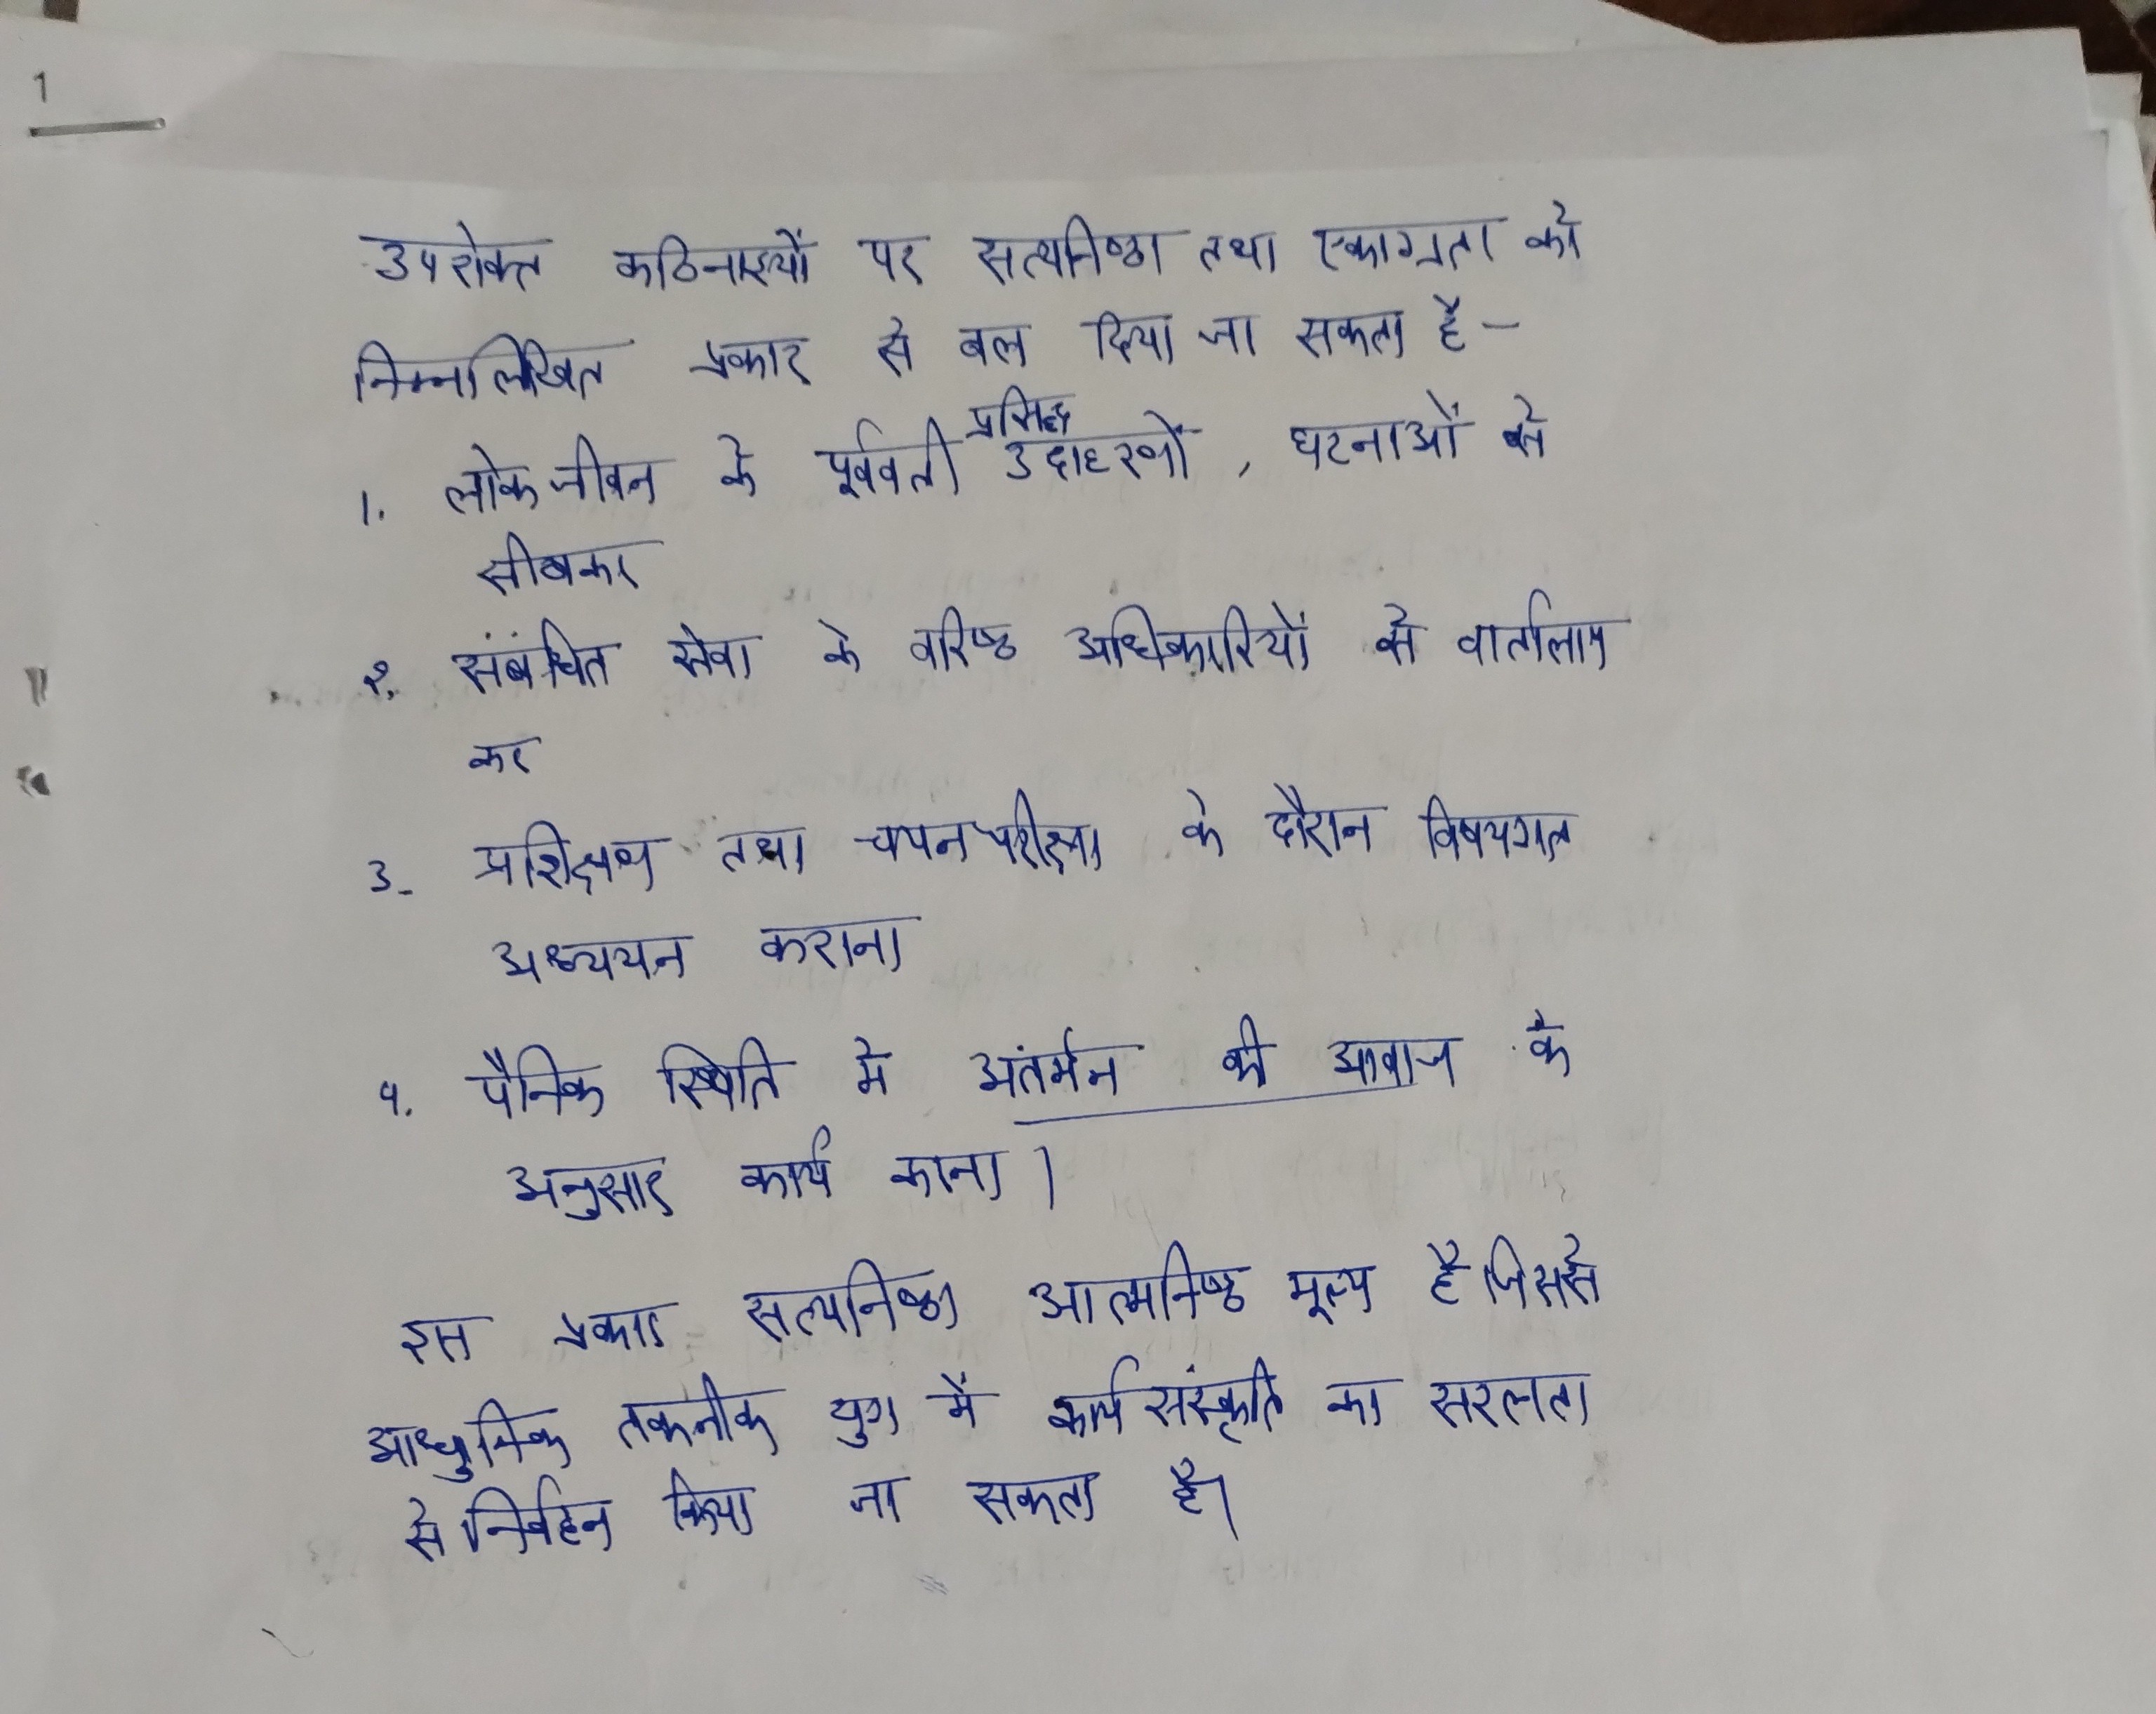 1
उपरोक्त कठिनाइयों पर सत्यनिष्ठा तथा एकाग्रता को
निम्नलिखित प्रकार से बल दिया जा सकता है –
प्रसिद्ध
1. लोक जीवन के पूर्ववर्ती उदाहरणों , घटनाओं से
सीखकर
2. संबंधित सेवा के वरिष्ठ अधिकारियों से वार्तालाप
कर
3- प्रशिक्षण तथा चयन परीक्षा के दौरान विषयगत
अध्ययन कराना
4. पैनिक स्थिति मे अंतर्मन की आवाज के
अनुसार कार्य करना ।
इस प्रकार सत्यनिष्ठा आत्मनिष्ठ मूल्य है जिससे
आधुनिक तकनीक युग में कार्य संस्कृति का सरलता
से निर्वहन किया जा सकता है।